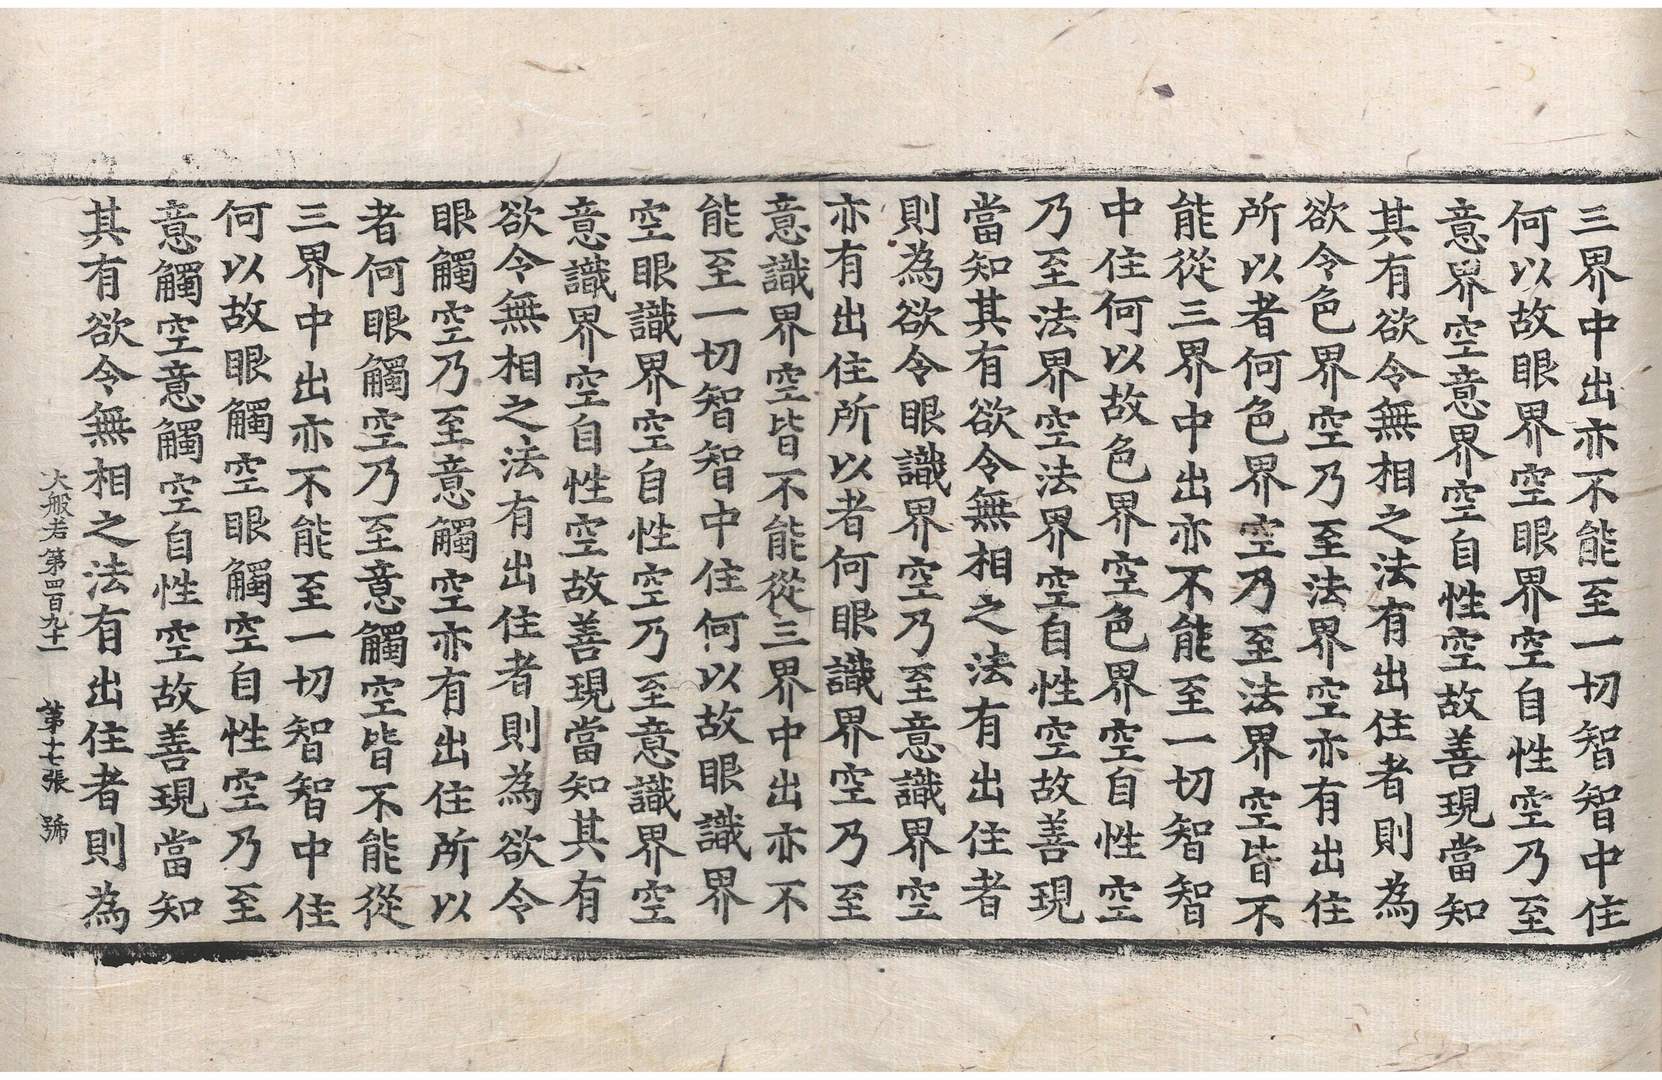 三界中出亦不能至一切智智中住
何以故眼界空眼界空自性空乃至
意界空意界空自性空故善現當知
其有欲令無相之法有出住者則為
欲令色界空乃至法界空亦有出住
所以者何色界空乃至法界空皆不
能從三界中出亦不能至一切智智
中住何以故色界空色界空自性空
乃至法界空法界空自性空故善現
當知其有欲令無相之法有出住者
則為欲令眼識界空乃至意識界空
亦有出住所以者何眼識界空乃至
意識界空皆不能從三界中出亦不
能至一切智智中住何以故眼識界
空眼識界空自性空乃至意識界空
意識界空自性空故善現當知其有
欲令無相之法有出住者則為欲令
眼觸空乃至意觸空亦有出住所以
者何眼觸空乃至意觸空皆不能從
三界中出亦不能至一切智智中住
何以故眼觸空眼觸空自性空乃至
意觸空意觸空自性空故善現當知
其有欲令無相之法有出住者則為
大般若第四百九十一 第十七張 號